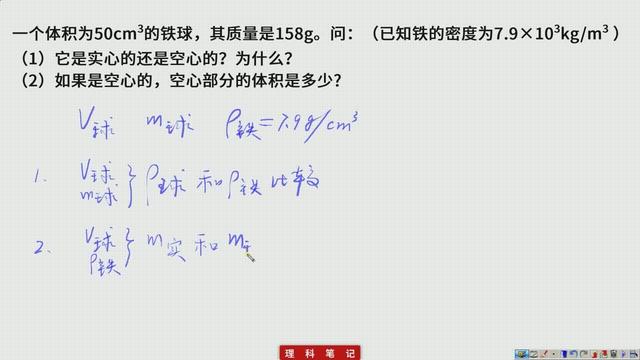 一个体积为50cm³的铁球，其质量是158g。问：（已知铁的密度为7.9×10³kg/m³ ）
（1）它是实心的还是空心的？为什么？
（2）如果是空心的，空心部分的体积是多少？
V球 m球 ρ铁=7.9g/cm³
1. V球 m球 } ρ球 和 ρ铁 比较
2. V球 ρ铁 } m实 和 m
理科笔记